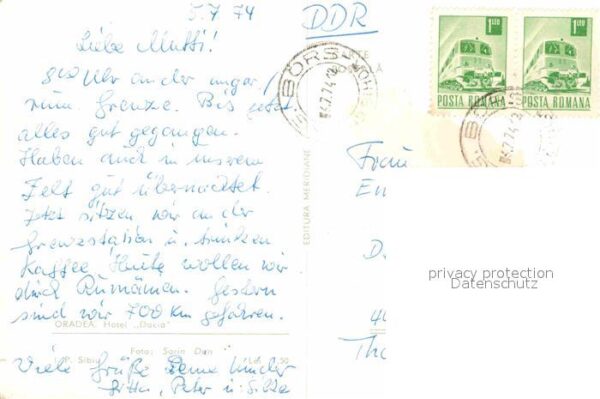 5.7.74
Liebe Mutti!
8 00 Uhr an der ungar/
rum. Grenze. Bis jetzt
alles gut gegangen.
Haben auch in unserem
Zelt gut übernachtet.
Jetzt sitzen wir an der
Grenzstation u. trinken
Kaffee. Heute wollen wir
durch Rumänien. Gestern
sind wir 700 km gefahren.
ORADEA. Hotel „Dacia"
Foto: Sorin Dan
Viele Grüße Deine Kinder
Peter u. Silke
EDITURA MERIDIANE
DDR
1 LEU
POSTA ROMANA
1 LEU
POSTA ROMANA
BORS
BORS
Frau
privacy protection
Datenschutz